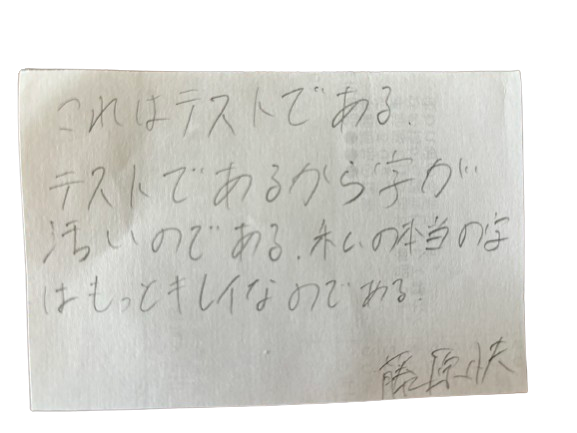 これはテストである.
テストであるから字が
汚いのである.私の本当の字
はもっとキレイなのである.
藤原